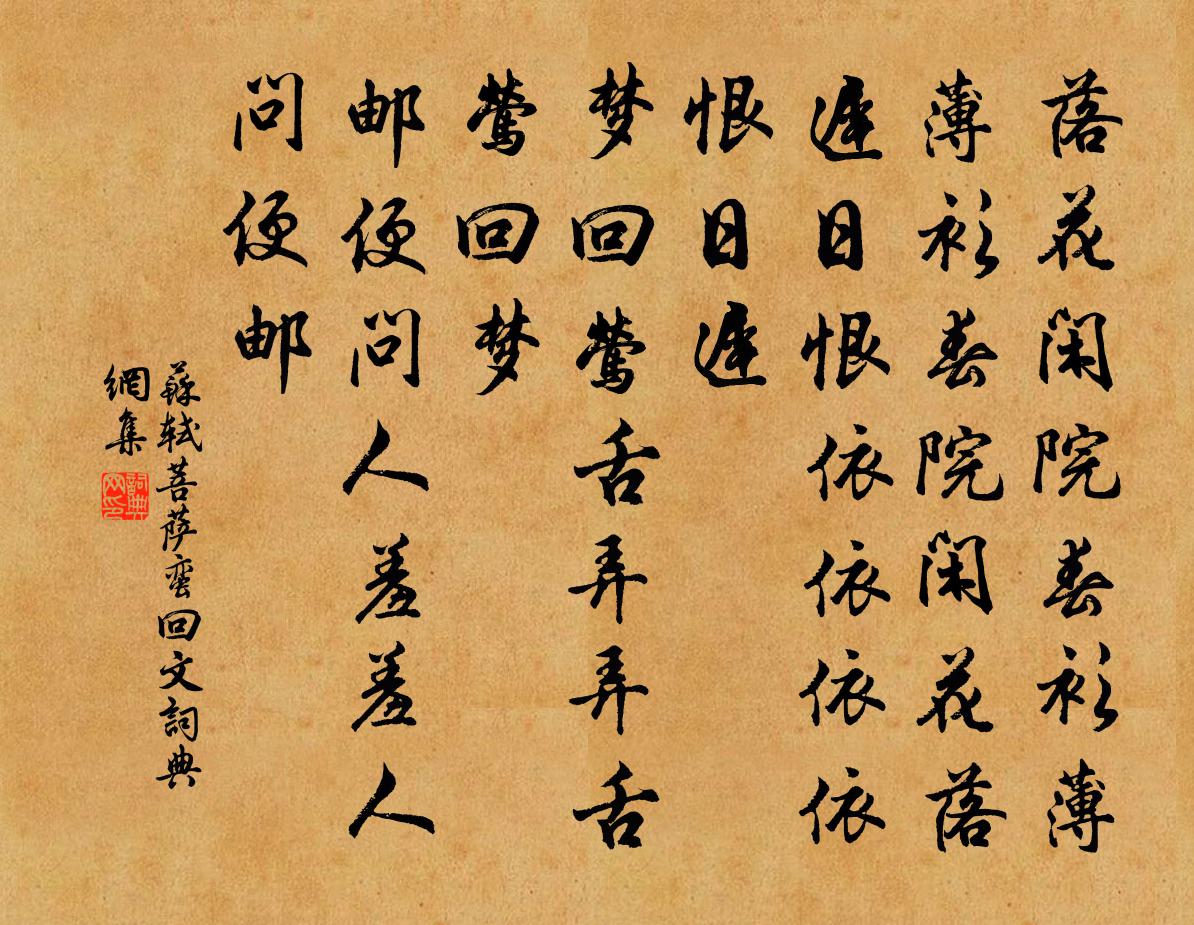 落花闲院春衫薄
薄衫春院闲花落
遲日恨依依
依依恨日遲
梦回莺舌弄
弄舌莺回梦
邮便问人羞
羞人问便邮
蘇轼菩萨蛮回文詞典
網集
詞典网印